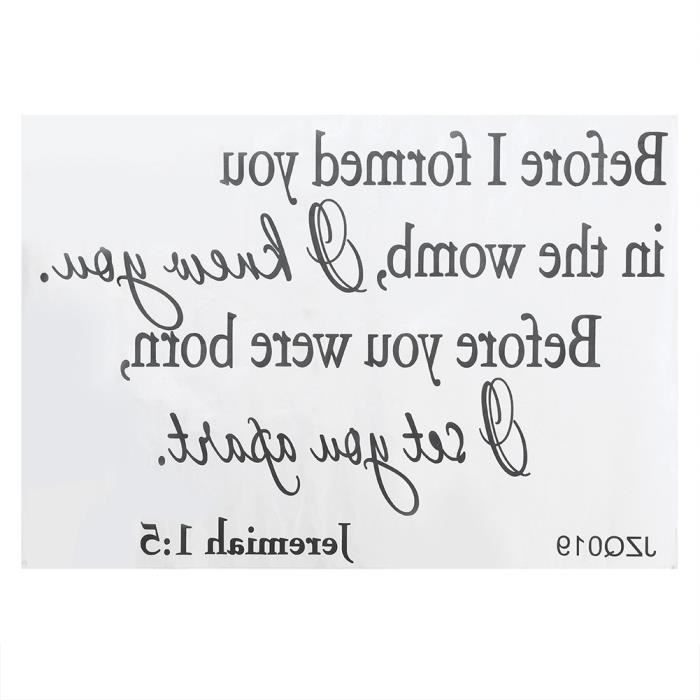 Before I formed you
in the womb, I knew you.
Before you were born,
I set you apart.
Jeremiah 1:5
JZQ019